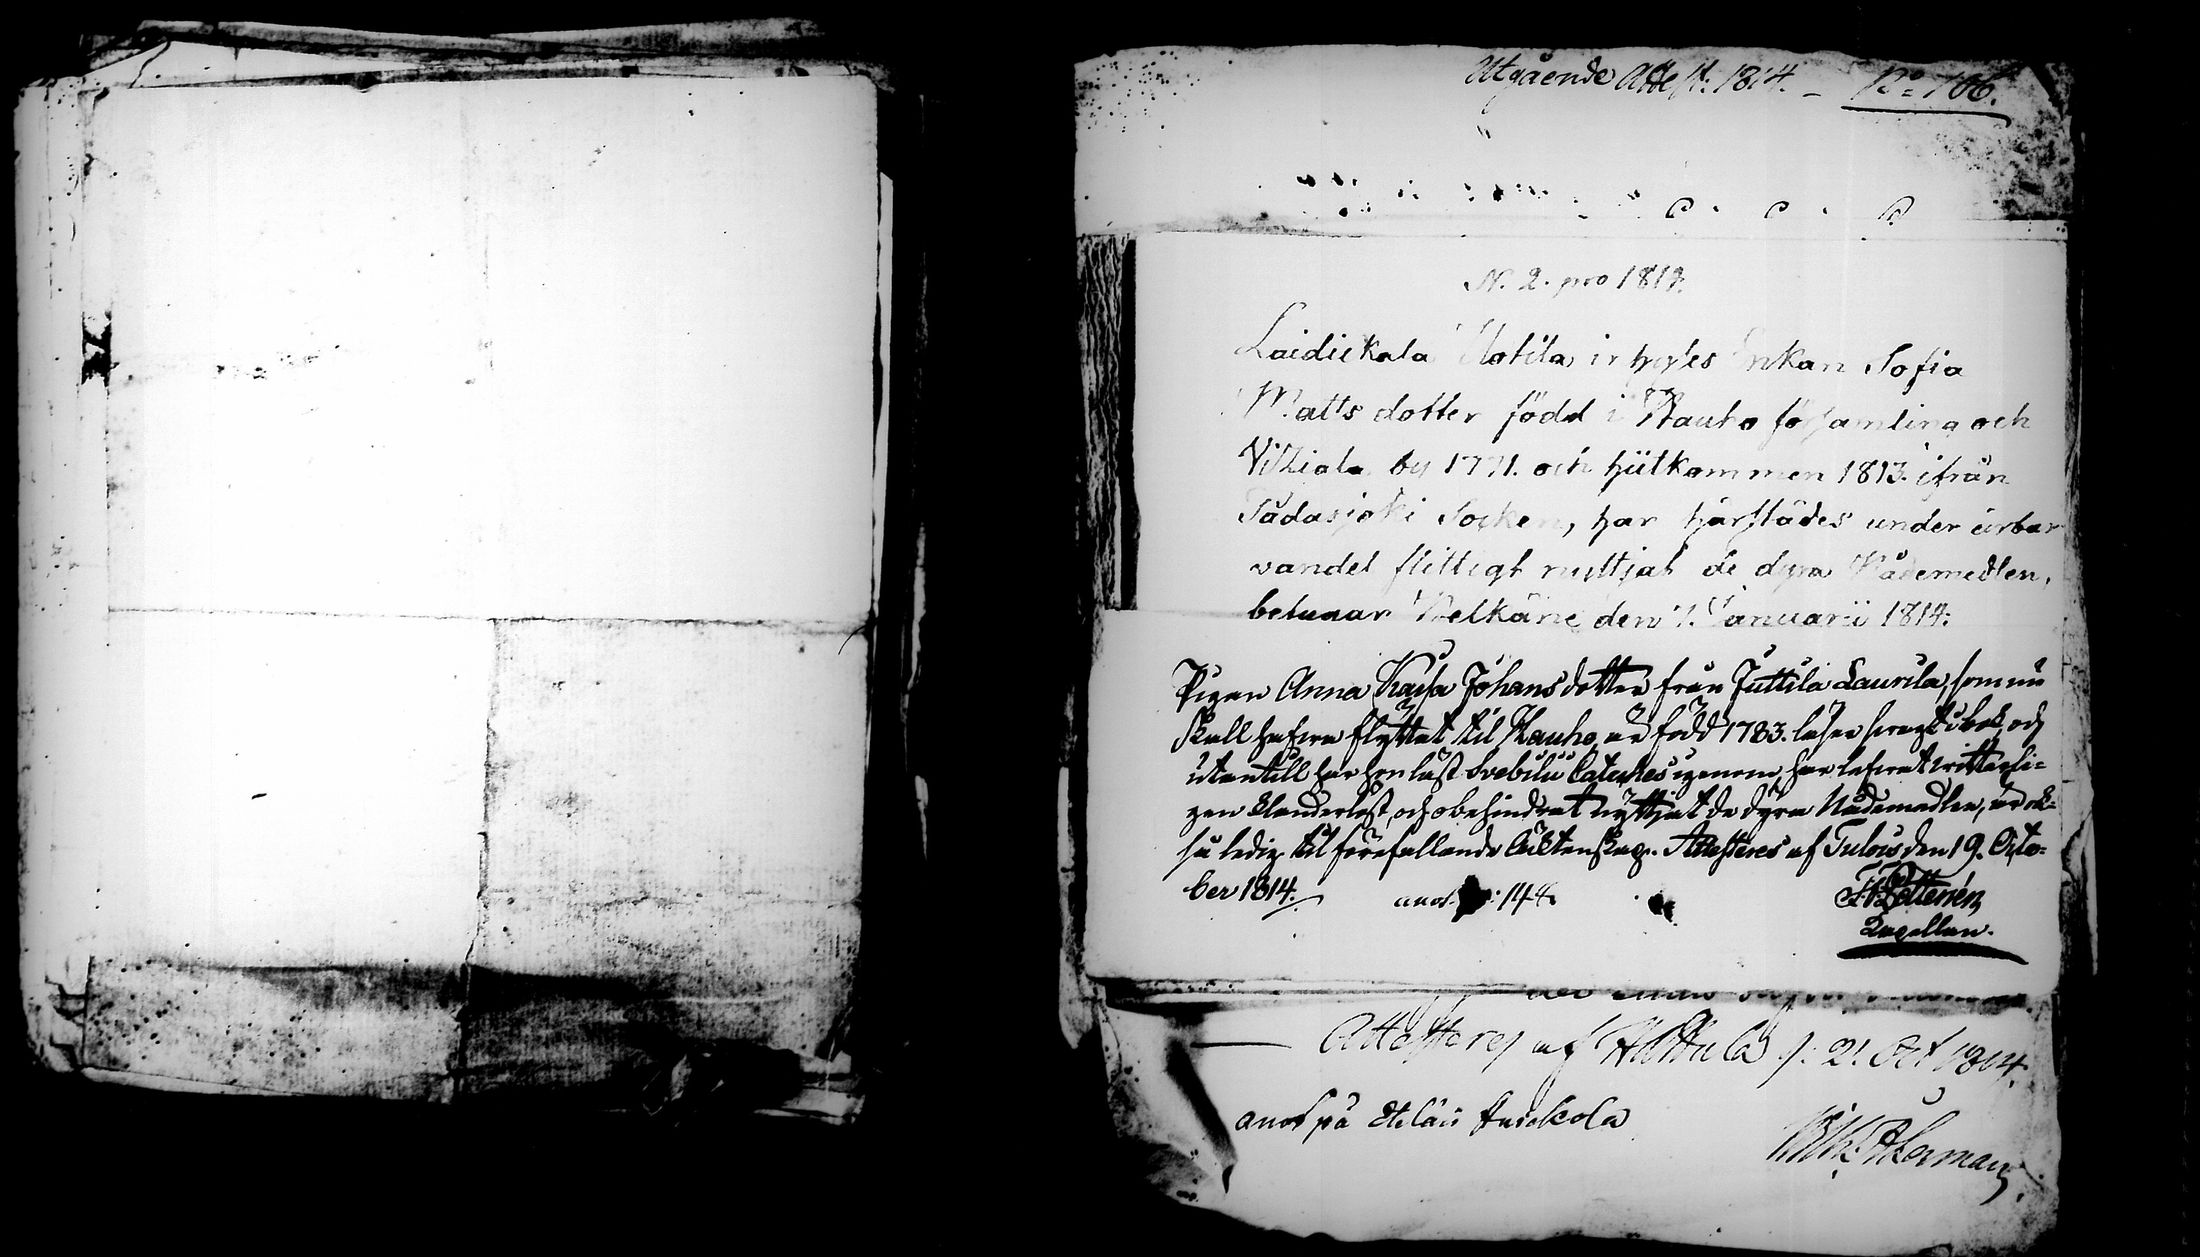 Utgående Attest. 1814. – No 106.
N. 2. pro 1814.
Laidickala Uotila inhyses Enkan Sofia
Matts dotter född i Hauho församling och
Vitziala by 1771. och hitkommen 1813. ifrån
Padasjoki Socken, har härstädes under ärbar
vandel flittigt nyttjat de dyra Nådemedlen,
betygar Pelkäne den 7. Januarii 1814:
Pigan Anna Kajsa Johansdotter från Juttila Laurila, som nu
skall hafva flyttat til Hauho, är född 1783. läser svagt i bok, och
utantill har hon läst Svebilii Cateches igenom, har lefvat kristeli=
gen klanderlöst, och obehindrat nyttjat de dyra Nådemedlen, är ock=
så ledig til förefallande äktenskap. Attesteres af Tulois den 19. Octo=
ber 1814. anot. : 144.
Capellan.
Attesteres af Hattula d. 21 Oct 1814.
anot på Eteläis Anickola
Åkerman